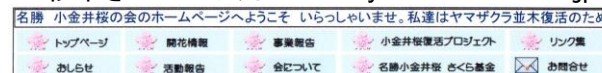 名勝 小金井桜の会のホームページへようこそ いらっしゃいませ。私達はヤマザクラ並木復活のため
トップページ 開花情報 事業報告 小金井桜復活プロジェクト リンク集
おしらせ 活動報告 会について 名勝小金井桜 さくら基金 お問合せ